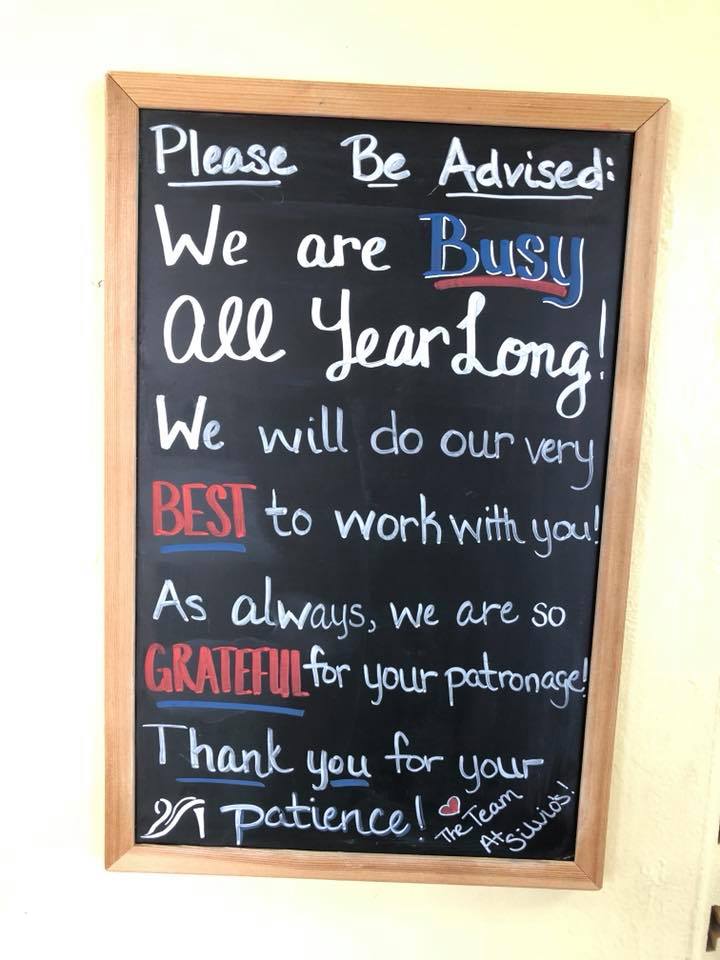 Please Be Advised:
We are Busy
All Year Long!
We will do our very
BEST to work with you!
As always, we are so
GRATEFUL for your patronage!
Thank you for your
patience!
The Team
At Silvio's!